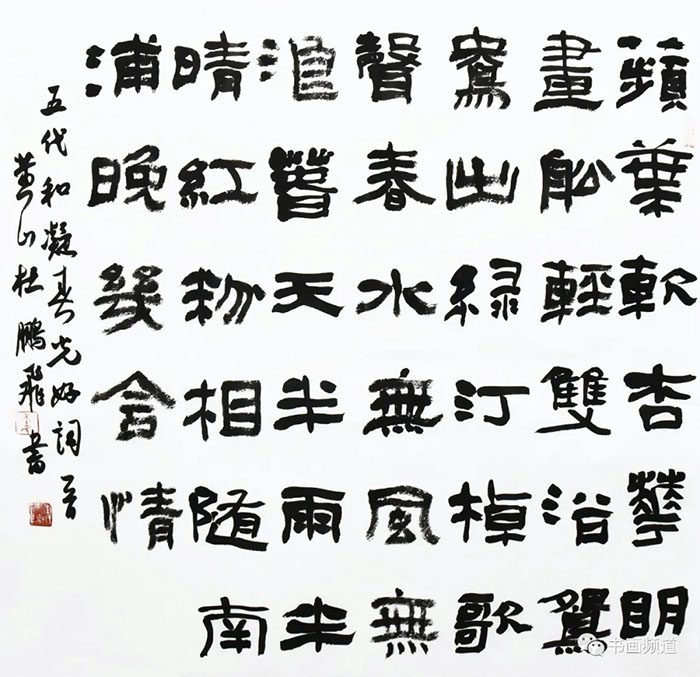 蘋葉軟杏華明
畫船輕雙浴鴛
鴦出綠汀棹歌
聲春水無風無
浪春天半雨半
晴紅粉相隨南
浦晚幾含情
五代和凝春光好詞一首
黄山杜鵬飛書
书画频道